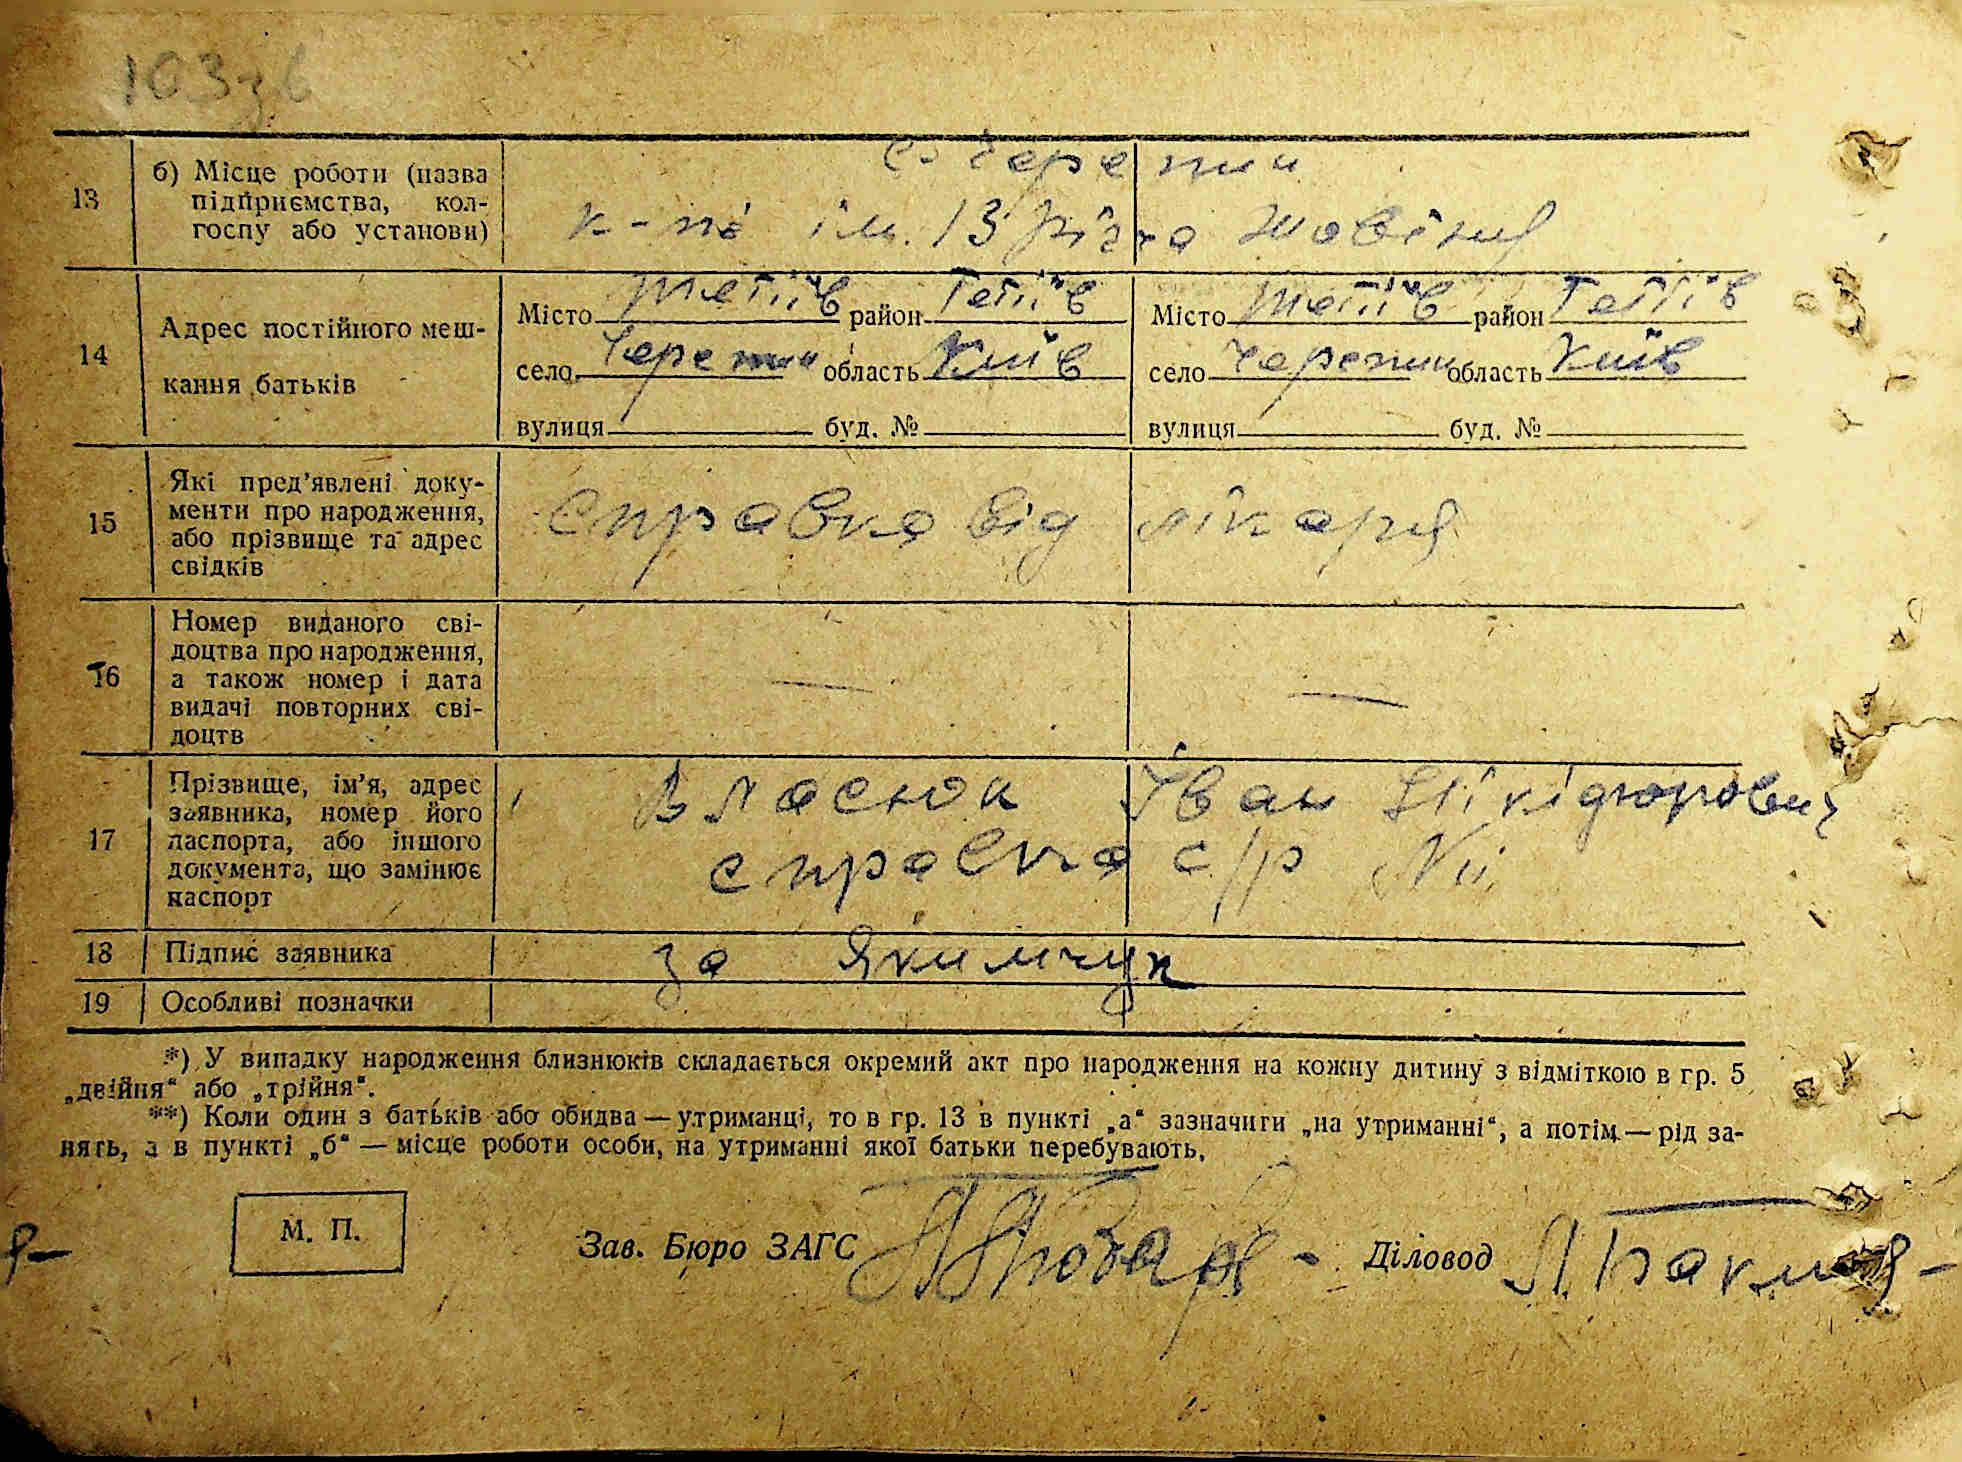 103зв
с. Черепин
13 б) Місце роботи (назва підприємства, кол-
госпу або установи)
к-пі ім. 13 річча Жовтня
14 Адрес постійного меш-
кання батьків
Місто Тетіїв район Тетіїв Місто Тетіїв район Тетіїв
село Черепин область Київ село Черепин область Київ
вулиця буд. № вулиця буд. №
15 Які пред’явлені доку-
менти про народження,
або прізвище та адрес
свідків
Справка від лікаря
16 Номер виданого сві-
доцтва про народження,
а також номер і дата
видачі повторних сві-
доцтв
— —
17 Прізвище, ім’я, адрес
заявника, номер його
паспорта, або іншого
документа, що замінює
паспорт
Власюк Іван Нікіфорович
справка с/р
18 Підпис заявника за Якимчук
19 Особливі позначки
*) У випадку народження близнюків складається окремий акт про народження на кожну дитину з відміткою в гр. 5
„двійня“ або „трійня“.
**) Коли один з батьків або обидва — утриманці, то в гр. 13 в пункті „а“ зазначити „на утриманні“, а потім — рід за-
нять, а в пункті „б“ — місце роботи особи, на утриманні якої батьки перебувають.
М. П.
Зав. Бюро ЗАГС Діловод